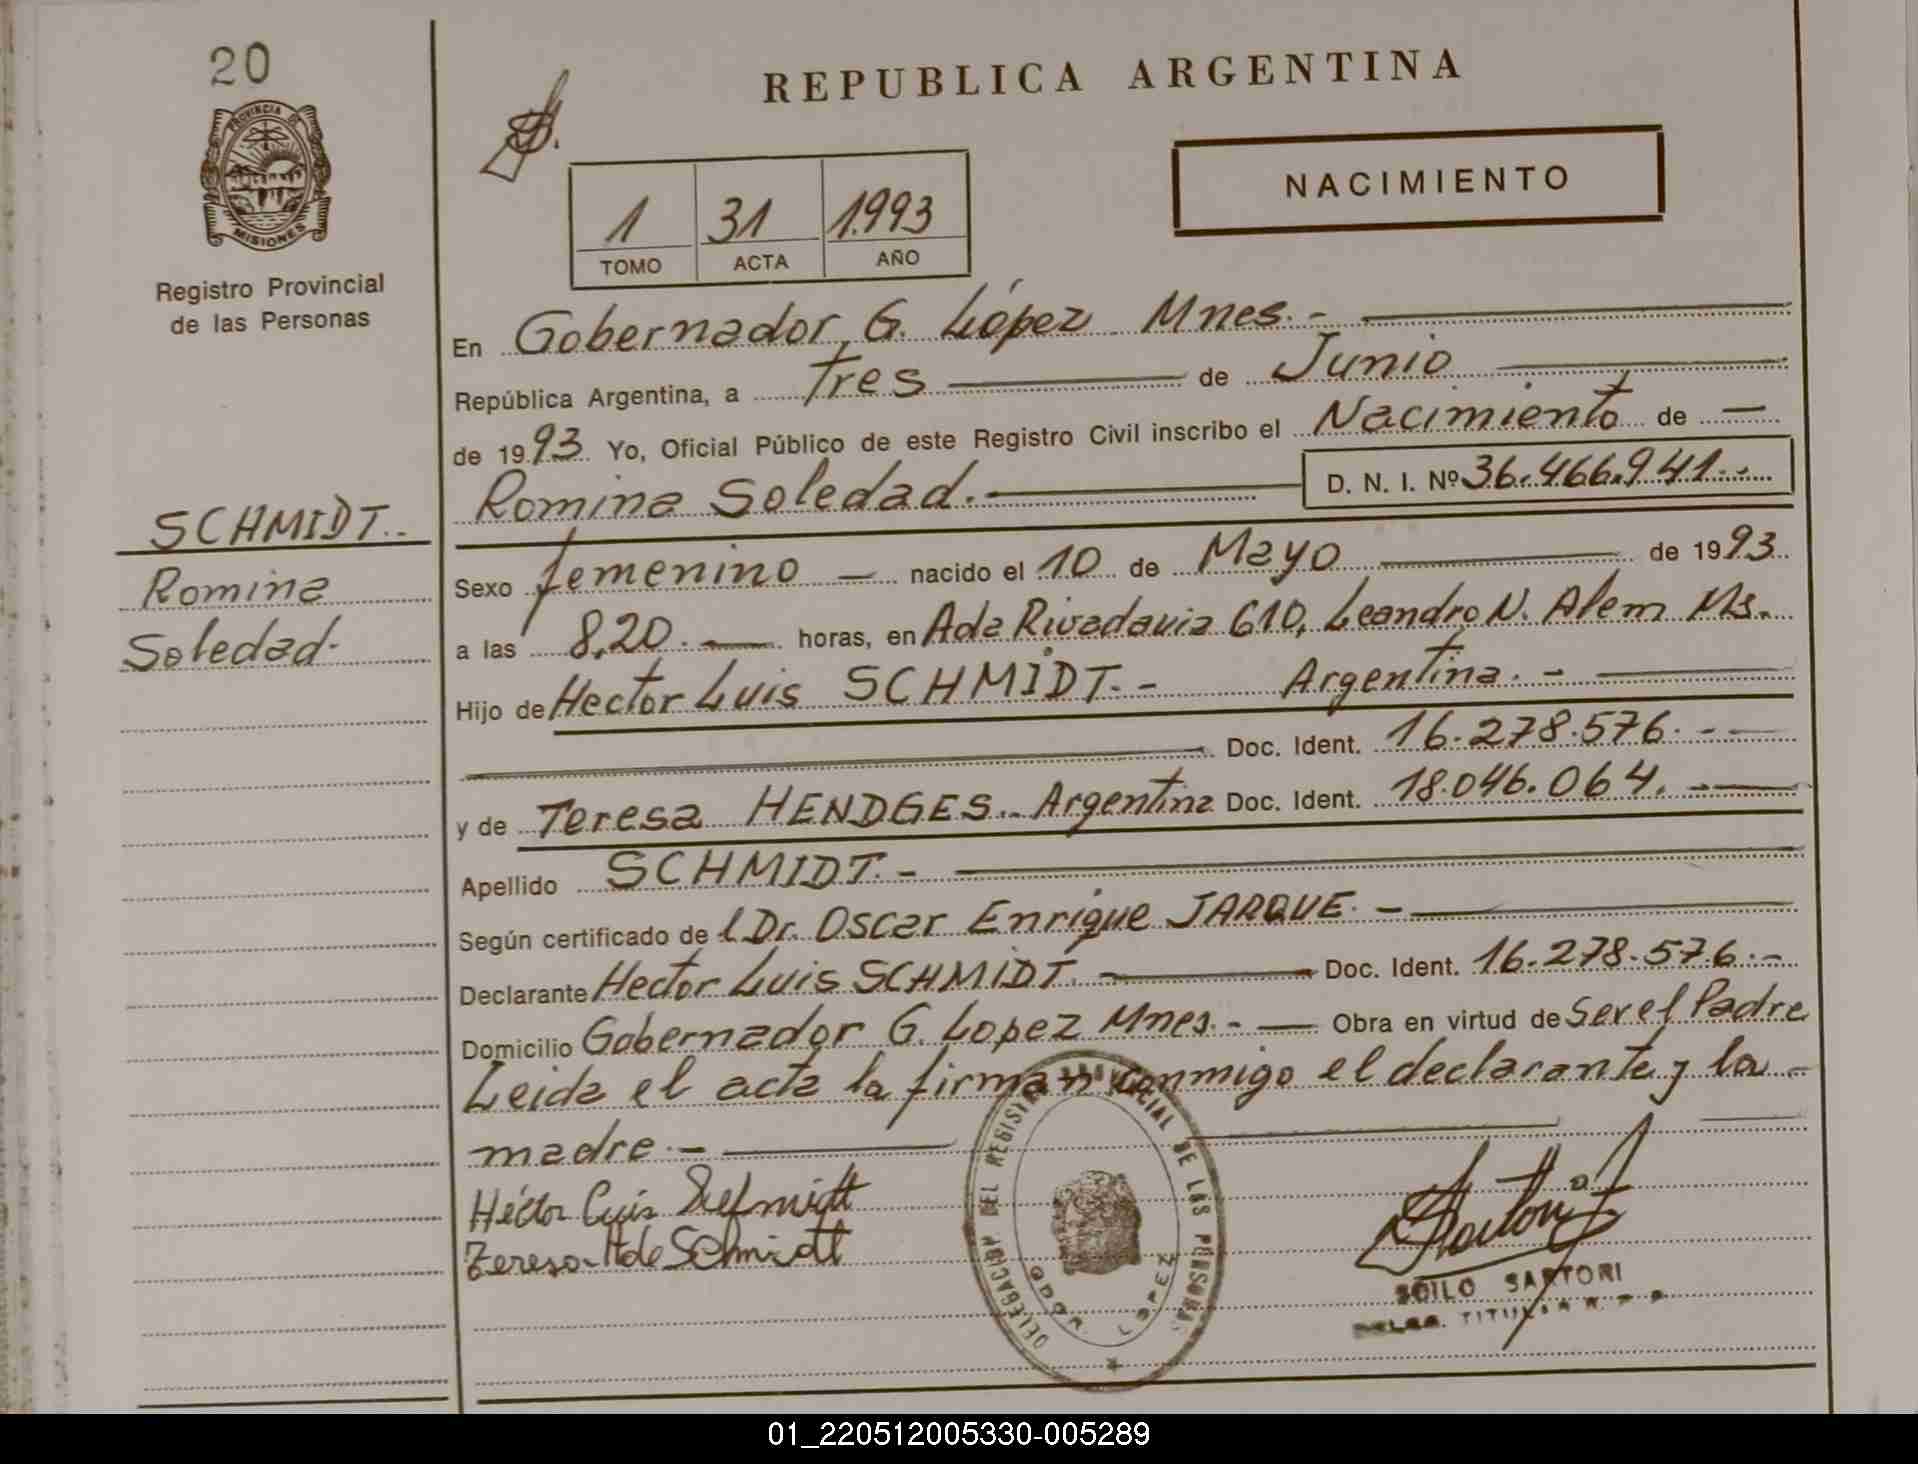 20
PROVINCIA DE
MISIONES
Registro Provincial
de las Personas
SCHMIDT.-
Romina
Soledad.
REPUBLICA ARGENTINA
NACIMIENTO
1 31 1.993
TOMO ACTA AÑO
En Gobernador G. López Mnes.-
República Argentina, a Tres de Junio
de 1993 Yo, Oficial Público de este Registro Civil inscribo el Nacimiento de —
Romina Soledad.- D. N. I. Nº 36.466.941.-
Sexo femenino — nacido el 10 de Mayo de 1993
a las 8,20. — horas, en Ada Rivadavia 610, Leandro N. Alem Ms.
Hijo de Hector Luis SCHMIDT.- Argentina.-
Doc. Ident. 16.278.576.-
y de Teresa HENDGES.- Argentina Doc. Ident. 18.046.064.-
Apellido SCHMIDT.-
Según certificado de l Dr. Oscar Enrique JARQUE.-
Declarante Hector Luis SCHMIDT.- Doc. Ident. 16.278.576.-
Domicilio Gobernador G. Lopez Mnes.- Obra en virtud de Ser el Padre
Leida el acta la firman conmigo el declarante y la -
madre.-
Héctor Luis Schmidt
Teresa H de Schmidt
DELEGACION DEL REGISTRO PROVINCIAL DE LAS PERSONAS
GDOR. LOPEZ
SOILO SARTORI
TITULAR R. P. P.
01_220512005330-005289